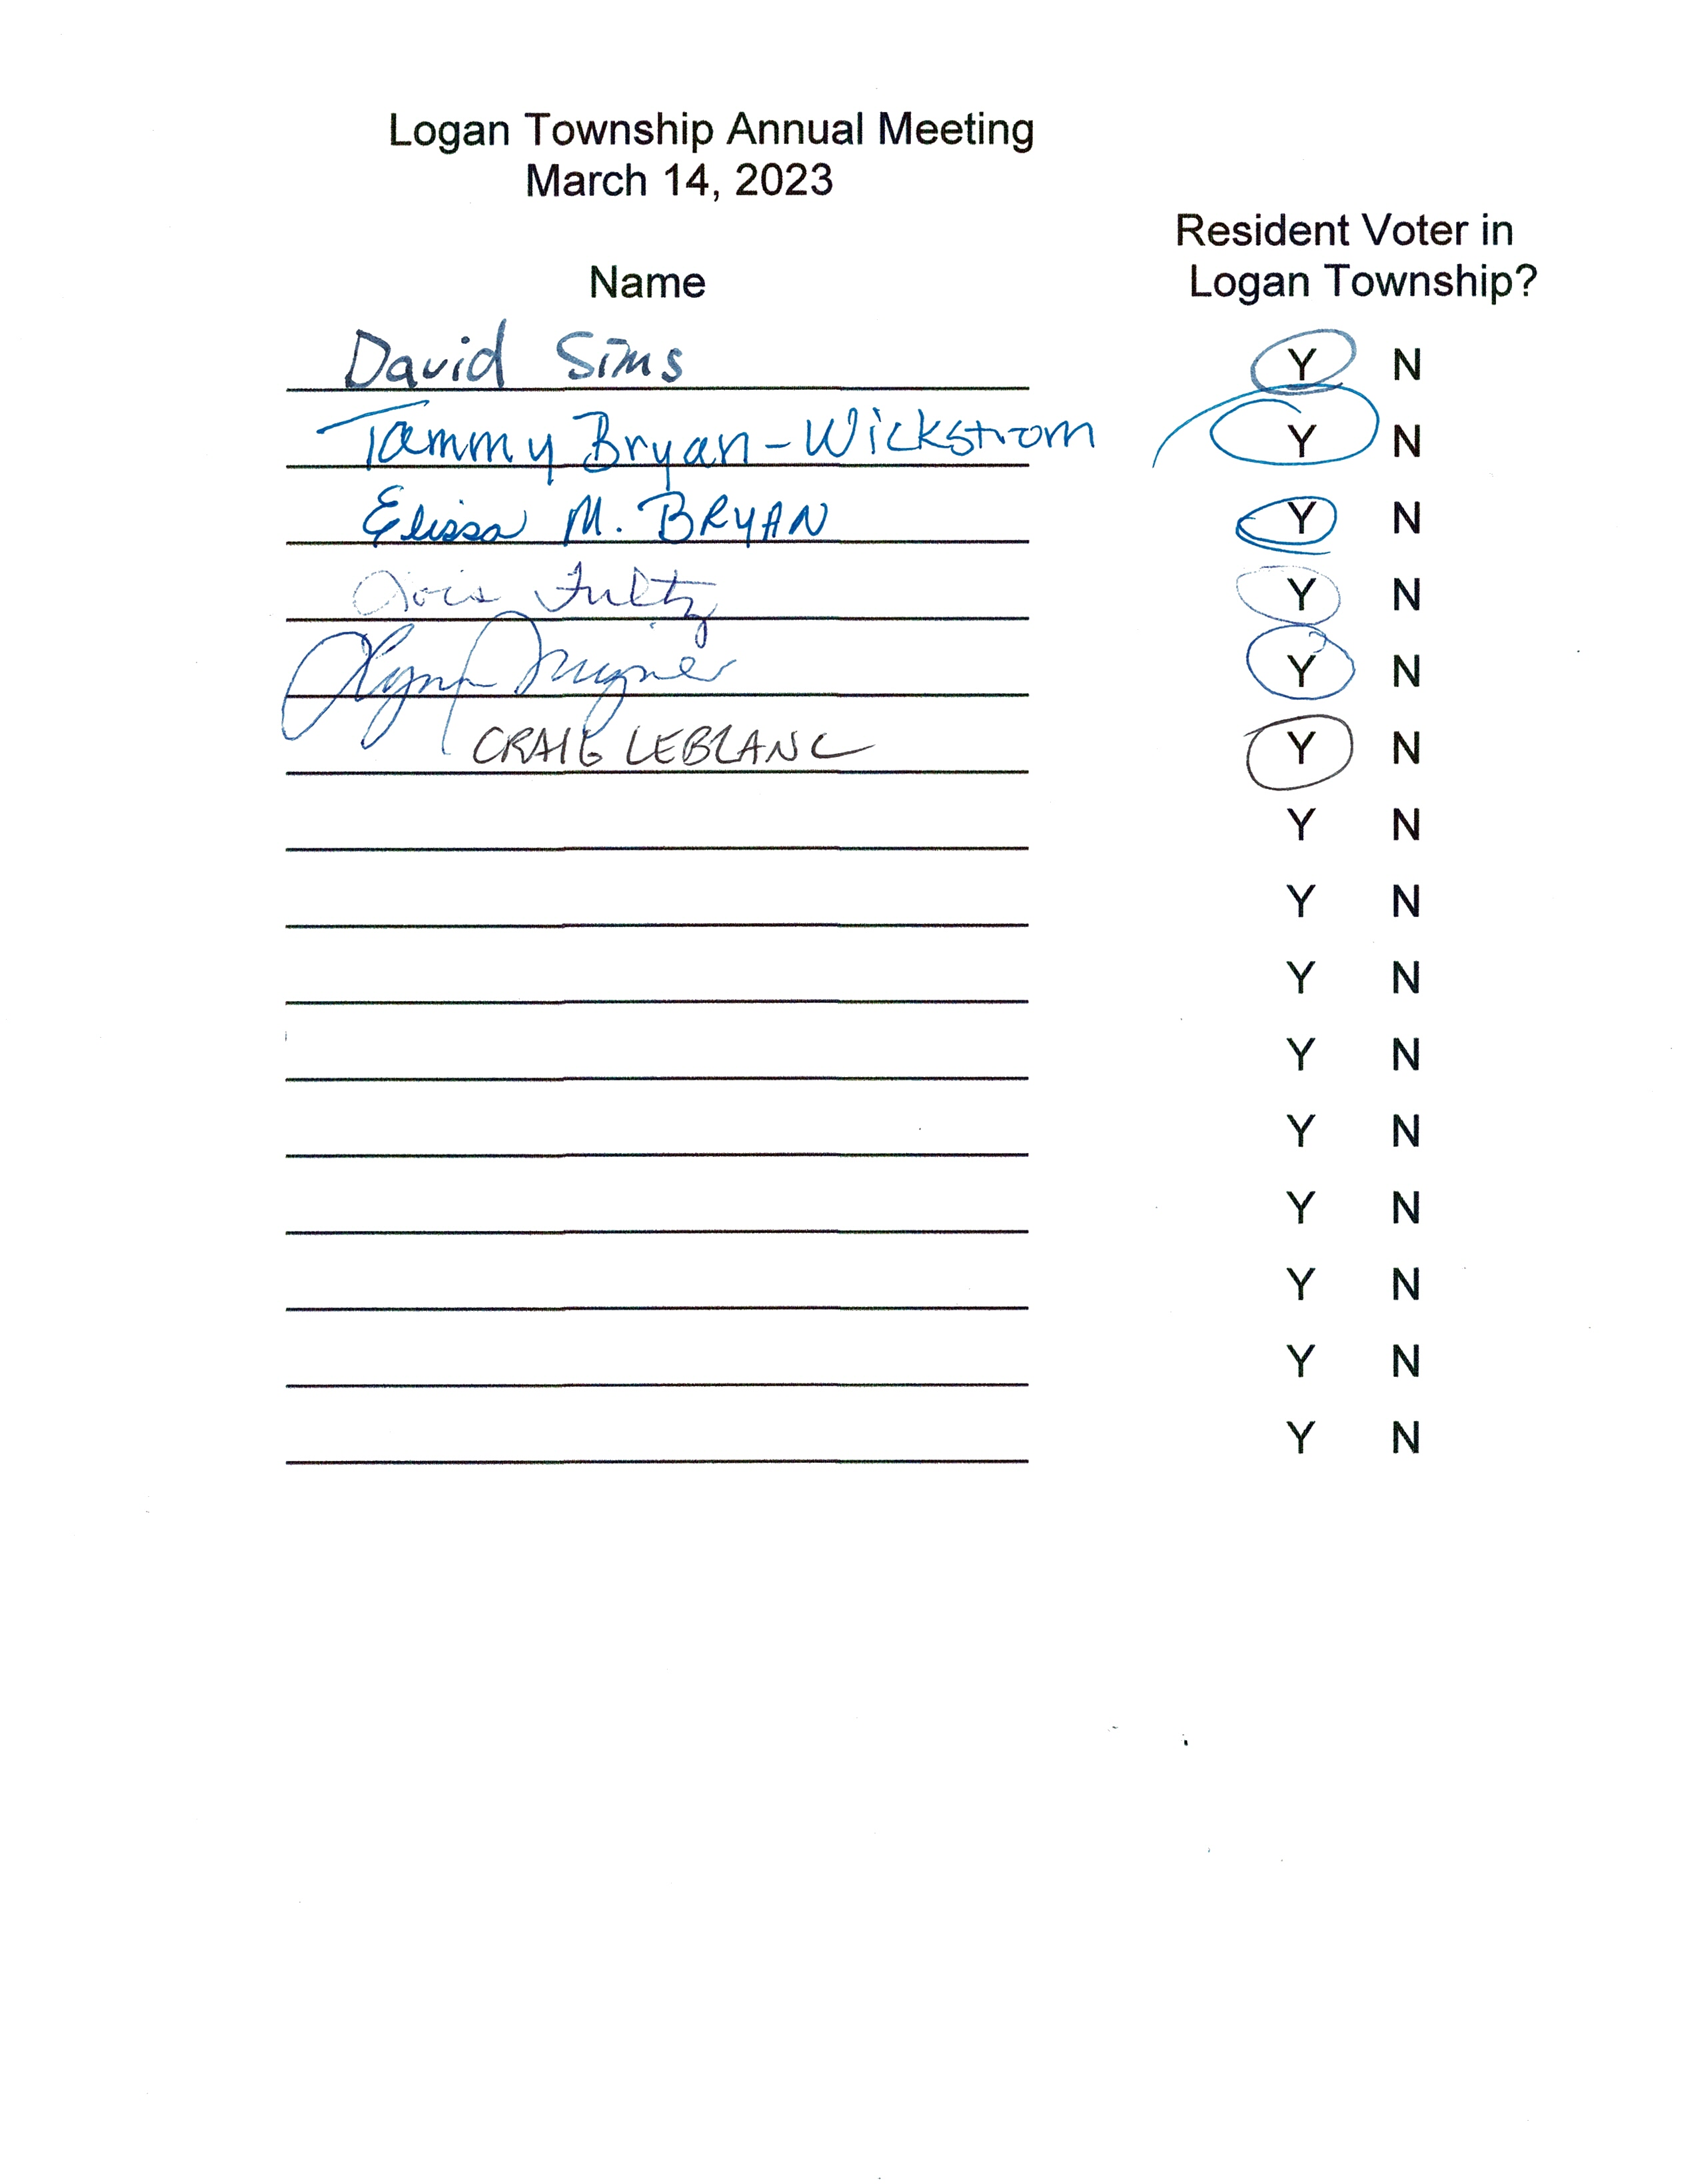 Logan Township Annual Meeting
March 14, 2023
Resident Voter in
Name Logan Township?
David Sims Y N
Tammy Bryan-Wickstrom Y N
Elissa M. BRYAN Y N
Fultz Y N
Lynn Y N
CRAIG LEBLANC Y N
Y N
Y N
Y N
Y N
Y N
Y N
Y N
Y N
Y N